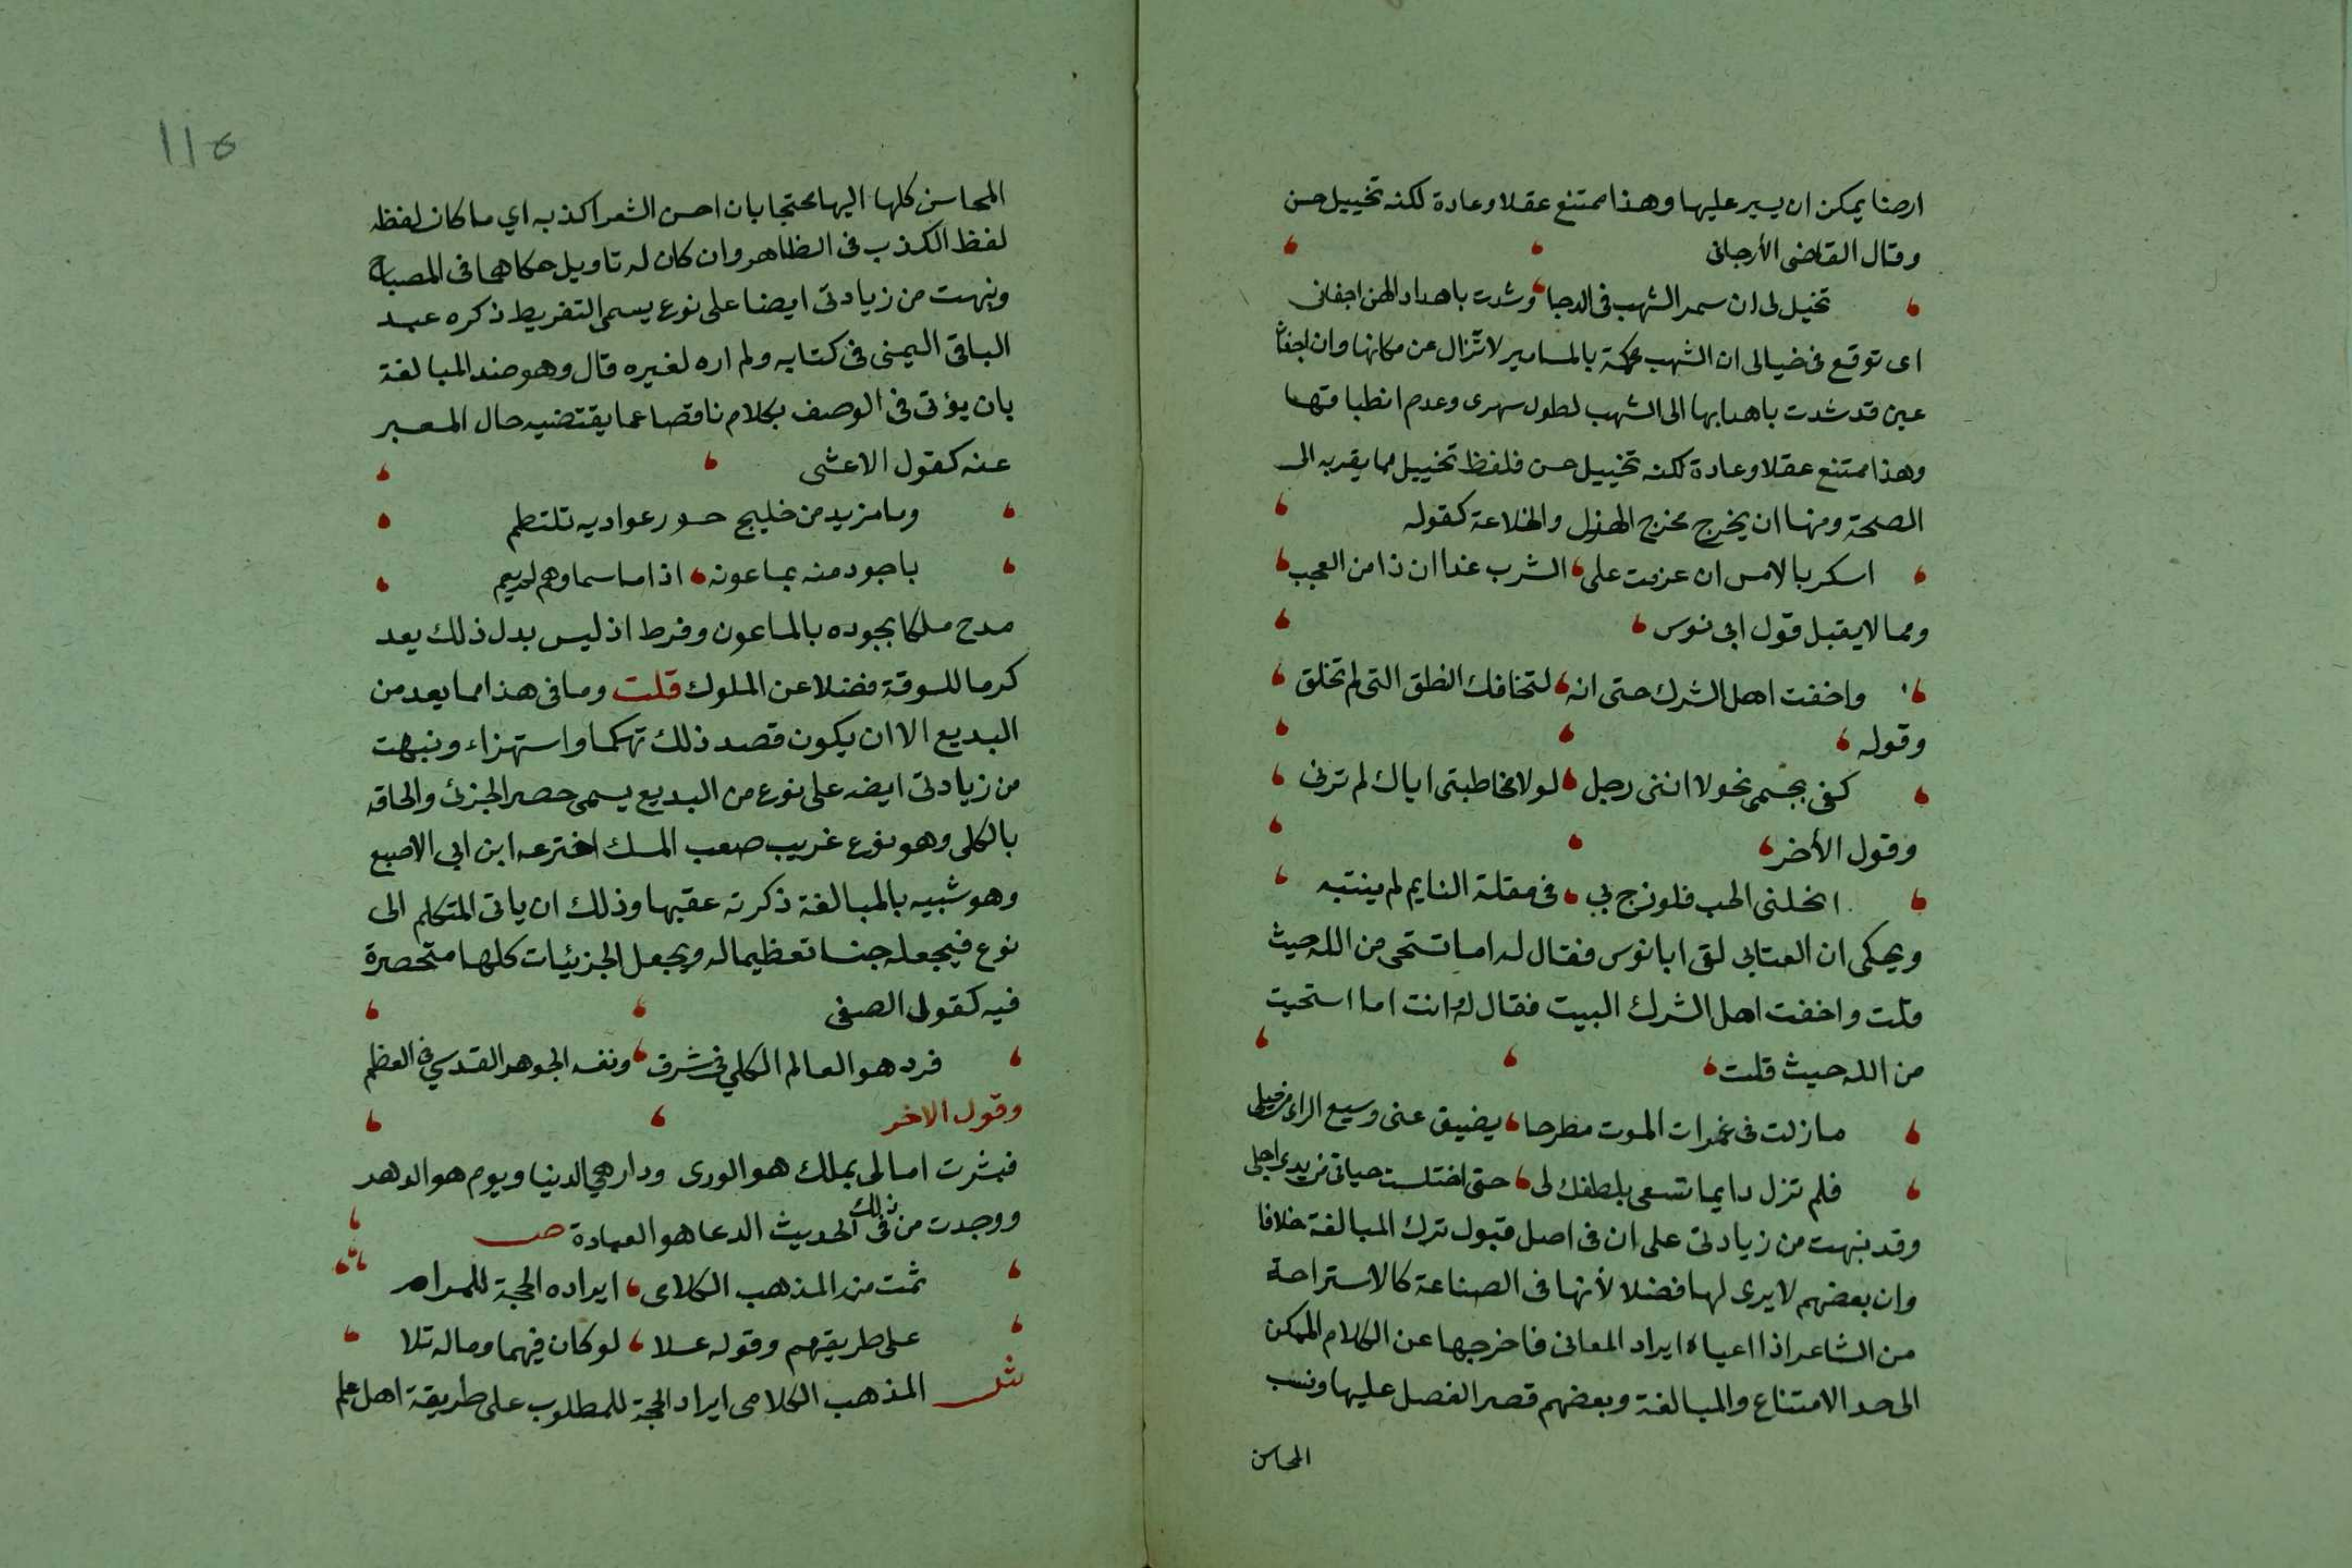 ارضا يمكن ان يسير عليها وهذا ممتنع عقلا وعادة لكنه تخييل حسن
وقال القاضى الأرجانى
تخيل لى ان سمر الشهب فى الدجا وشدت باهداب الهن اجفانى
اى توقع فى خيالى ان الشهب محكمة بالمسامير لا تزال عن مكانها وان اجفان
عين قد شدت باهدابها الى الشهب لطول سهرى وعدم انطباقتها
وهذا ممتنع عقلا وعادة لكنه تخييل حسن فلفظ تخييل مما يقربه الى
الصحة ومنها ان يخرج مخرج الهزل والخلاعة كقوله
اسكر بالامس ان عزمت على الشرب غدا ان ذا من العجب
ومما لا يقبل قول ابى نوس
واخفت اهل الشرك حتى انه لتخافك النطق التى لم تخلق
وقوله
كفى بجسمى نحولا اننى رجل لولا مخاطبتى اياك لم ترنى
وقول الأخر
انحلنى الحب فلو زج بي فى مقلة النايم لم ينتبه
ويحكى ان العتابى لقى ابا نوس فقال له اما تستحى من الله حيث
قلت واخفت اهل الشرك البيت فقال له وانت اما استحيت
من الله حيث قلت
ما زلت فى غمرات الموت مطرحا يضيق عنى وسيع الراى من حيلى
فلم تزل دايما تسعى بلطفك لى حتى اختلست حياتى من يدى اجلى
وقد نبهت من زيادتى على ان فى اصل قبول ترك المبالغة خلافا
وان بعضهم لا يرى لها فضلا لأنها فى الصناعة كالاستراحة
من الشاعر اذا اعياه ايراد المعانى فاخرجها عن الكلام الممكن
الى حد الامتناع والمبالغة وبعضهم قصر الفصل عليها ونسب
المحاسن
١١٥
المحاسن كلها اليها محتجا بان احسن الشعر اكذبه اي ما كان لفظه
لفظ الكذب فى الظاهر وان كان له تاويل حكاهما فى المصباح
ونبهت من زيادتى ايضا على نوع يسمى التفريط ذكره عبد
الباقى اليمنى فى كتابه ولم اره لغيره قال وهو ضد المبالغة
بان يؤتى فى الوصف بكلام ناقصا عما يقتضيه حال المعبر
عنه كقول الاعشى
وما مزبد من خليج حدور عواديه تلتطم
باجود منه بماعونه اذا ما سماوهم لم يعم
مدح ملكا بجوده بالماعون وفرط اذ ليس بدل ذلك يعد
كرما للسوقة فضلا عن الملوك قلت وما فى هذا مما يعد من
البديع الا ان يكون قصد ذلك تهكما واستهزاء ونبهت
من زيادتى ايضه على نوع من البديع يسمى حصر الجزئ والحاقه
بالكلى وهو نوع غريب صعب المسك اخترعه ابن ابي الاصبع
وهو شبيه بالمبالغة ذكرته عقبها وذلك ان ياتى المتكلم الى
نوع فيجعله جنسا تعظيما له ويجعل الجزئيات كلها متحصرة
فيه كقول الصفى
فرد هو العالم الكلي فى شرف ونفسه الجوهر القدسي فى العظم
وقول الاخر
فبشرت امالى بملك هو الورى ودار هي الدنيا ويوم هو الدهر
ووجدت من ذلك فى الحديث الدعا هو العبادة ص
ثمت من المذهب الكلامى ايراده الحجة للمرام
على طريقهم وقوله علا لو كان فيهما وماله تلا
ش المذهب الكلامى ايراد الحجة للمطلوب على طريقة اهل علم